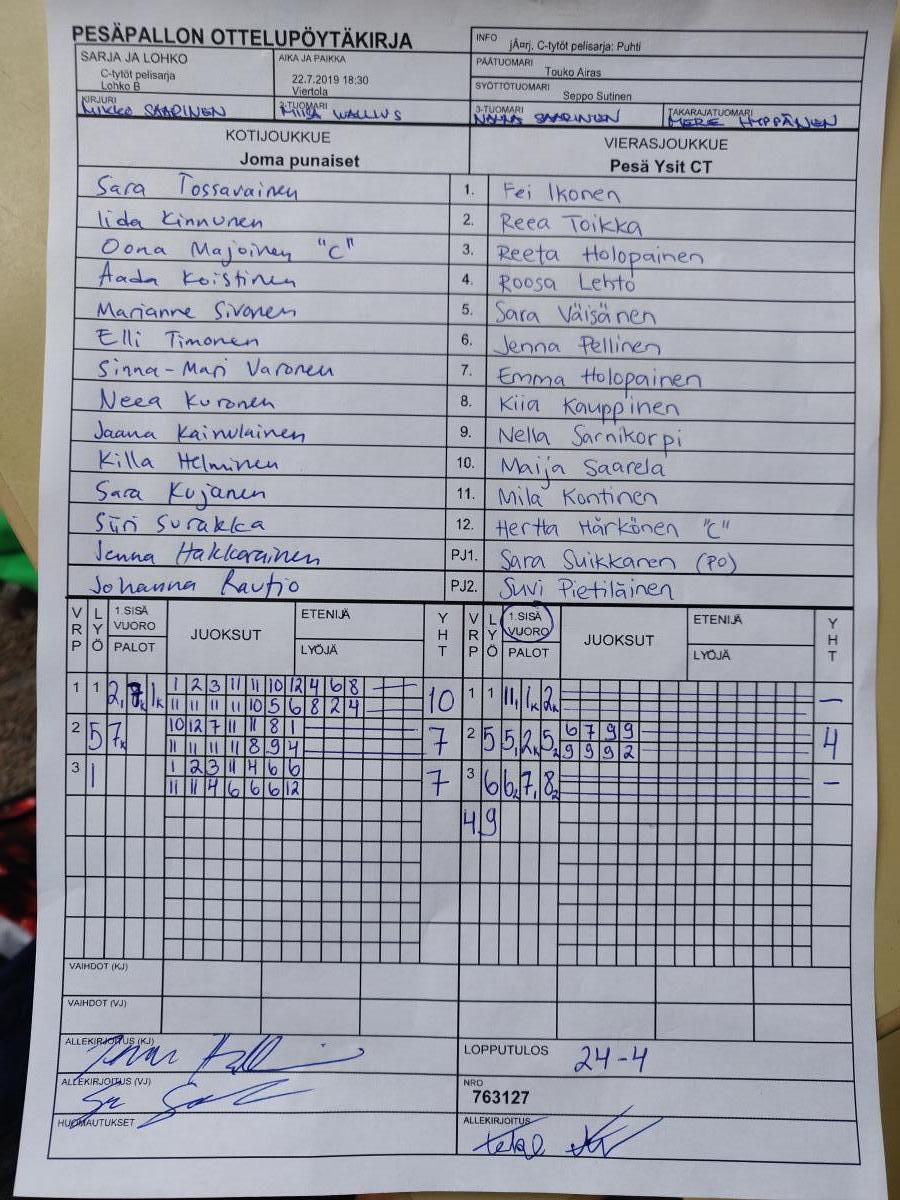 PESÄPALLON OTTELUPÖYTÄKIRJA
INFO jÃ¤rj. C-tytöt pelisarja: Puhti
SARJA JA LOHKO
C-tytöt pelisarja
Lohko B
AIKA JA PAIKKA
22.7.2019 18:30
Viertola
PÄÄTUOMARI Touko Airas
SYÖTTÖTUOMARI Seppo Sutinen
KIRJURI MIKKO SAARINEN
2-TUOMARI MIISA WALLIUS
3-TUOMARI SAARINEN
TAKARAJATUOMARI MERE HYPPÄNEN
KOTIJOUKKUE
Joma punaiset
VIERASJOUKKUE
Pesä Ysit CT
Sara Tossavainen 1. Fei Ikonen
Iida Kinnunen 2. Reea Toikka
Oona Majoinen "C" 3. Reeta Holopainen
Aada Koistinen 4. Roosa Lehto
Marianne Sivonen 5. Sara Väisänen
Elli Timonen 6. Jenna Pellinen
Sinna-Mari Varonen 7. Emma Holopainen
Neea Kuronen 8. Kiia Kauppinen
Jaana Kainulainen 9. Nella Sarnikorpi
Killa Helminen 10. Maija Saarela
Sara Kujanen 11. Mila Kontinen
Siiri Surakka 12. Hertta Härkönen "C"
Jenna Hakkarainen PJ1. Sara Suikkanen (PO)
Johanna Rautio PJ2. Suvi Pietiläinen
VRP LYÖ 1.SISÄ VUORO PALOT JUOKSUT ETENIJÄ LYÖJÄ YHT VRP LYÖ 1.SISÄ VUORO PALOT JUOKSUT ETENIJÄ LYÖJÄ YHT
1 1 2, 1k 1 2 3 11 11 10 12 4 6 8 10 1 1 11, 1k 2k —
11 11 11 11 10 5 6 8 2 4
2 5 7k 10 12 7 11 11 8 1 7 2 5 5, 2k 52 6 7 9 9 4
11 11 11 11 8 9 4 9 9 9 2
3 1 1 2 3 11 4 6 6 7 3 6 62 7, 82 —
11 11 4 6 6 6 12
4 9
VAIHDOT (KJ)
VAIHDOT (VJ)
ALLEKIRJOITUS (KJ)
LOPPUTULOS 24-4
ALLEKIRJOITUS (VJ)
NRO
763127
HUOMAUTUKSET
ALLEKIRJOITUS